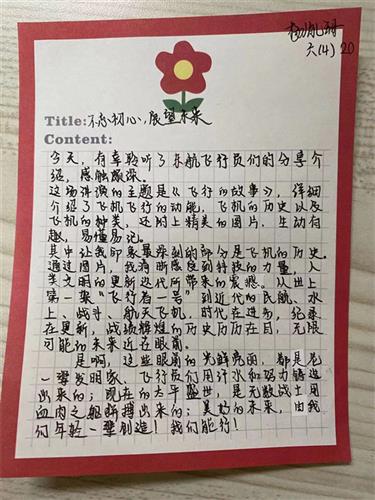 六(4) 20
Title: 不忘初心,展望未来
Content:
今天,有幸聆听了东航飞行员们的分享介
绍,感触颇深。
这场讲演的主题是《飞行的故事》,详细
介绍了飞机飞行的动能,飞机的历史以及
飞机的种类,还附上精美的图片,生动有
趣,易懂易记。
其中让我印象最深刻的部分是飞机的历史。
通过图片,我清晰感度到科技的力量,人
类文明的更新迭代所带来的震撼。从世上
第一架“飞行者一号”到近代的民航、水
上、战斗、航天飞机,时代在进步,纪录
在更新,战绩辉煌的历史历历在目,无限
可能的未来近在眼前。
是啊,这些眼前的光鲜亮丽,都是老
一辈发明家、飞行员们用汗水和努力铸造
出来的;现在的太平盛世,是无数战士用
血肉之躯拼搏出来的;美好的未来,由我
们年轻一辈创造!我们能行!